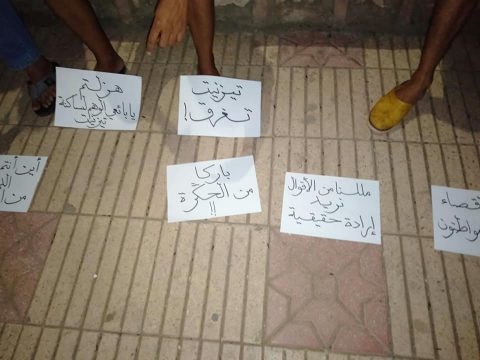 هزلتم
يا بائعي الوهم لساكنة
تيزنيت
تيزنيت
تغرق!
أين أنتم
من
باركا
من الحكرة
!!
مللنا من الأقوال
نريد
إرادة حقيقية
قصاء
مواطنون